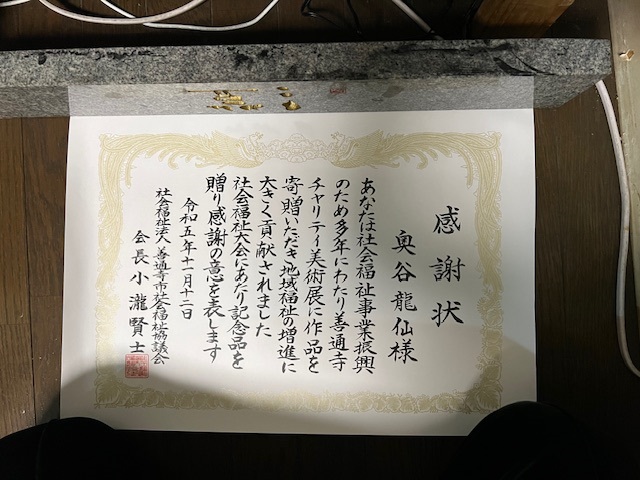 感謝状
奥谷龍仙様
あなたは社会福祉事業振興
のため多年にわたり善通寺
チャリティ美術展に作品を
寄贈いただき地域福祉の増進に
大きく貢献されました
社会福祉大会にあたり記念品を
贈り感謝の意を表します
令和五年十一月十二日
社会福祉法人善通寺市社会福祉協議会
会長小瀧賢士